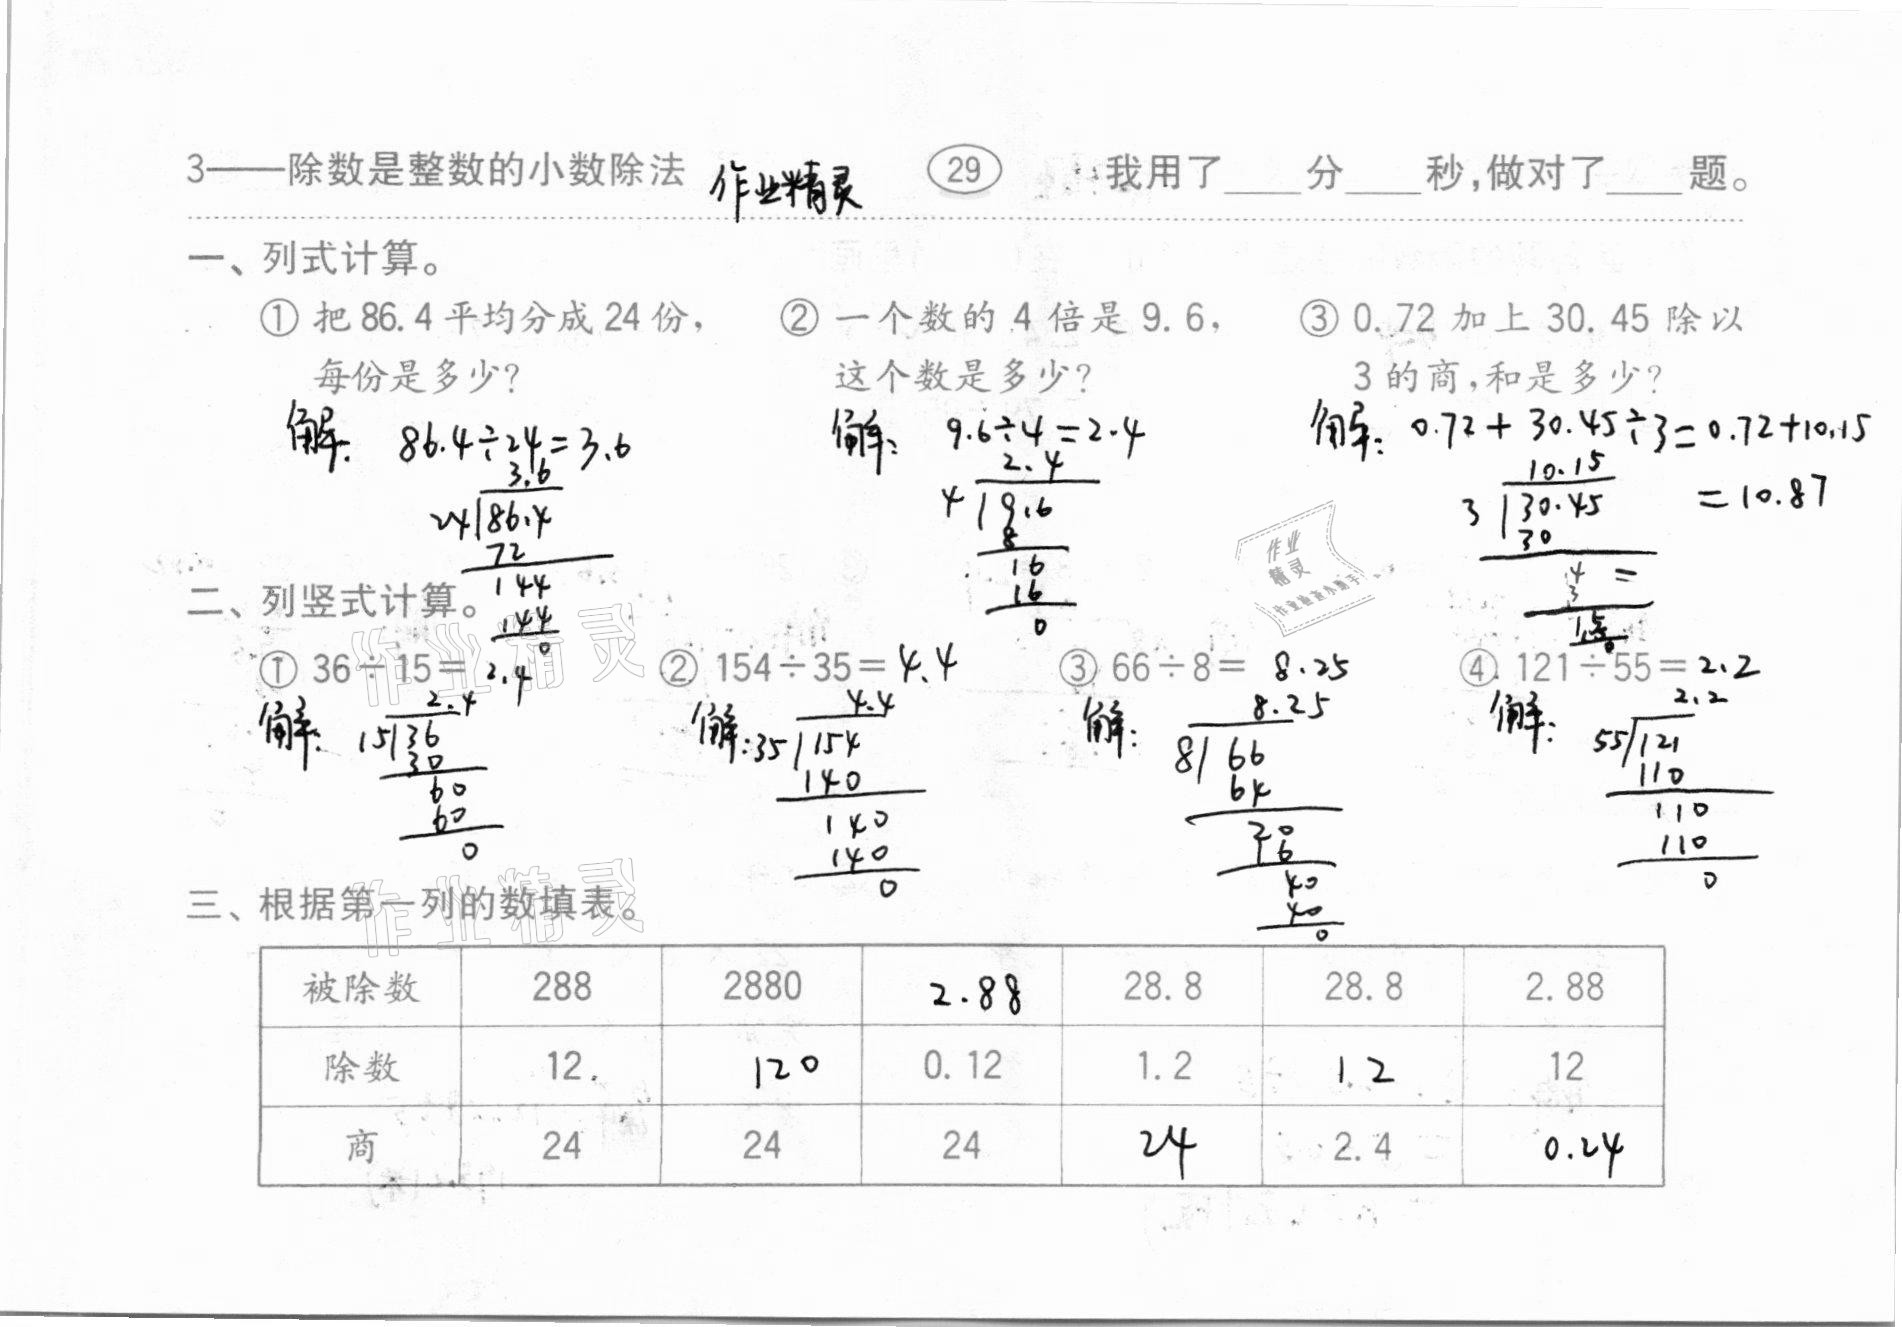 3——除数是整数的小数除法 作业精灵 29 我用了____分____秒,做对了____题。
一、列式计算。
① 把86.4平均分成24份, ② 一个数的4倍是9.6, ③ 0.72加上30.45除以
每份是多少? 这个数是多少? 3的商,和是多少?
解: 86.4÷24=3.6 解: 9.6÷4=2.4 解: 0.72+30.45÷3=0.72+10.15
3.6 2.4 10.15 =10.87
24 86.4 4 9.6 3 30.45
72 8 30
144 16 4
144 16 3
0 0 15
作业
精灵
二、列竖式计算。
作业精灵
① 36÷15=2.4 ② 154÷35=4.4 ③ 66÷8=8.25 ④ 121÷55=2.2
2.4 4.4 8.25 2.2
解: 15 36 解: 35 154 解: 8 66 解: 55 121
30 140 64 110
60 140 20 110
60 140 16 110
0 0 40 0
40
0
三、根据第一列的数填表。
作业精灵
被除数 288 2880 2.88 28.8 28.8 2.88
除数 12 120 0.12 1.2 12 12
商 24 24 24 24 2.4 0.24